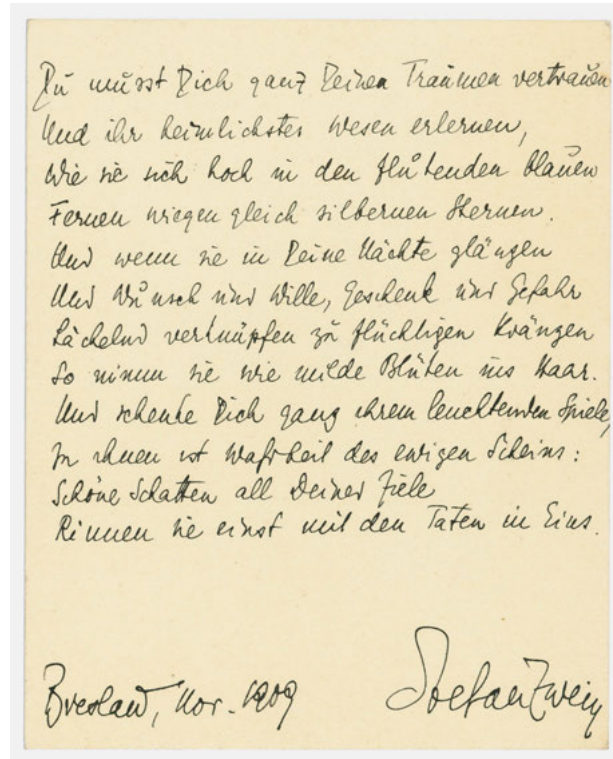 Du musst Dich ganz Deinen Träumen vertrauen
Und ihr heimlichstes Wesen erlernen,
Wie sie sich hoch in den flutenden blauen
Fernen wiegen gleich silbernen Sternen.
Und wenn sie in Deine Nächte glänzen
Und Wunsch und Wille, Geschenk und Gefahr
Lächelnd verknüpfen zu flüchtigen Kränzen
So nimm sie wie milde Blüten ins Haar.
Und schenke Dich ganz ihrem leuchtenden Spiele,
In ihnen ist Wahrheit des ewigen Scheins:
Schöne Schatten all Deiner Ziele
Rinnen sie einst mit den Taten in Eins.
Breslau, Nov. 1909
Stefan Zweig